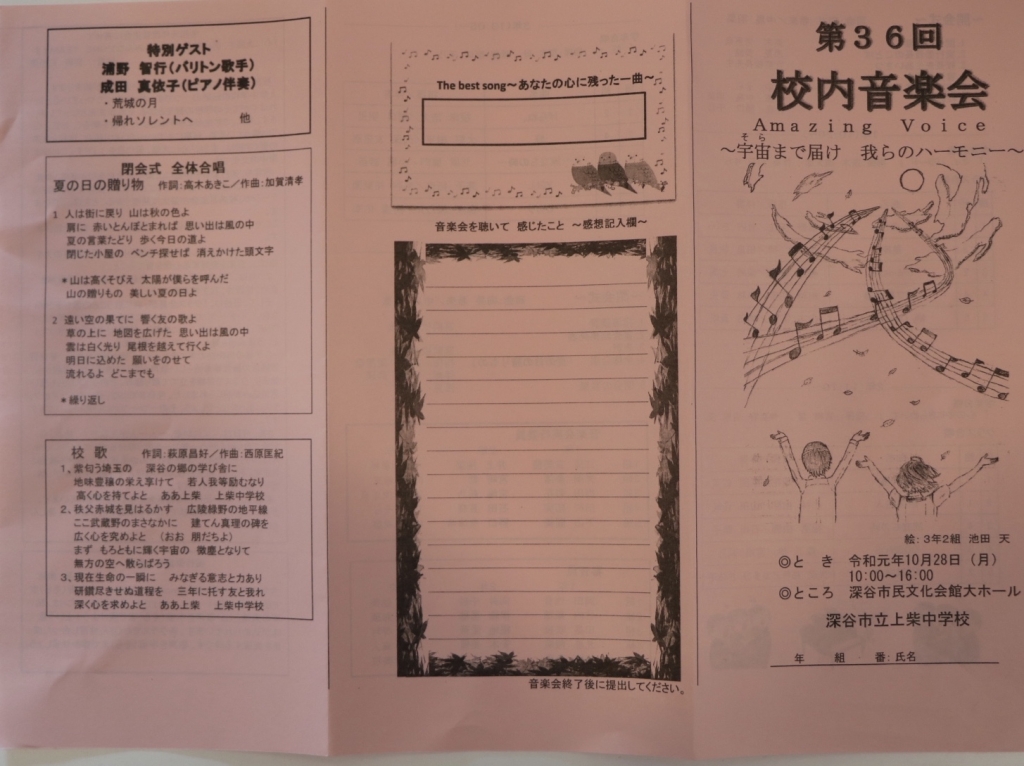 特別ゲスト
浦野 智行(バリトン歌手)
成田 真依子(ピアノ伴奏)
・荒城の月
・帰れソレントへ 他
閉会式 全体合唱
夏の日の贈り物 作詞:高木あきこ/作曲:加賀清孝
1 人は街に戻り 山は秋の色よ
肩に 赤いとんぼとまれば 思い出は風の中
夏の言葉たどり 歩く今日の道よ
閉じた小屋の ベンチ探せば 消えかけた頭文字
*山は高くそびえ 太陽が僕らを呼んだ
山の贈りもの 美しい夏の日よ
2 遠い空の果てに 響く友の歌よ
草の上に 地図を広げた 思い出は風の中
雲は白く光り 尾根を越えて行くよ
明日に込めた 願いをのせて
流れるよ どこまでも
*繰り返し
校 歌 作詞:萩原昌好/作曲:西原匡紀
1、紫匂う埼玉の 深谷の郷の学び舎に
地味豊穣の栄え享けて 若人我等励むなり
高く心を持てよと ああ上柴 上柴中学校
2、秩父赤城を見はるかす 広陵緑野の地平線
ここ武蔵野のまさなかに 建てん真理の碑を
広く心を究めよと (おお 朋だちよ)
まず もろともに輝く宇宙の 微塵となりて
無方の空へ散らばろう
3、現在生命の一瞬に みなぎる意志と力あり
研鑽尽きせぬ道程を 三年に托す友と我れ
深く心を求めよと ああ上柴 上柴中学校
The best song~あなたの心に残った一曲~
音楽会を聴いて 感じたこと ~感想記入欄~
音楽会終了後に提出してください。
第36回
校内音楽会
Amazing Voice
そら
~宇宙まで届け 我らのハーモニー~
絵:3年2組 池田 天
◎と き 令和元年10月28日(月)
10:00~16:00
◎ところ 深谷市民文化会館大ホール
深谷市立上柴中学校
年 組 番:氏名